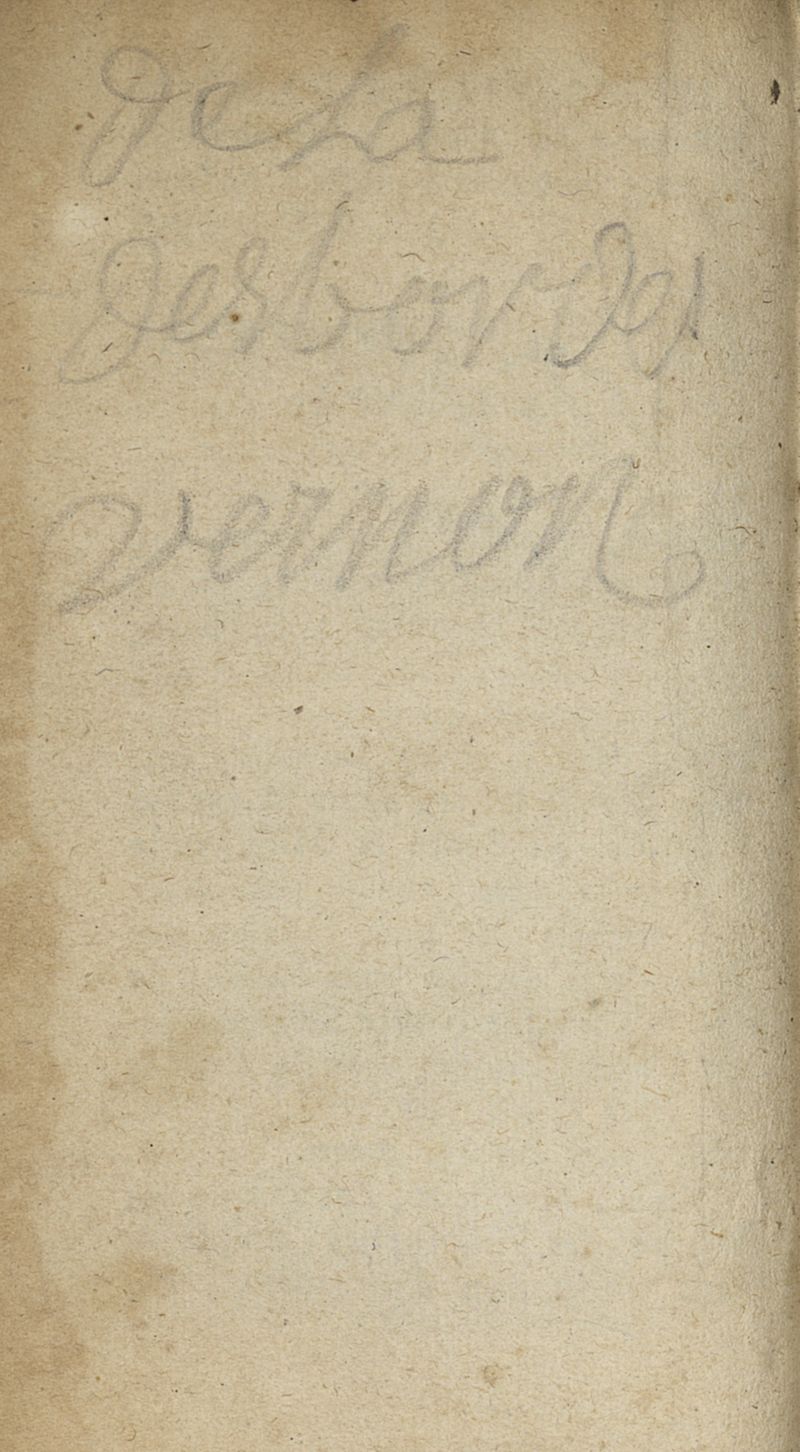 de La
desbordes
vernon